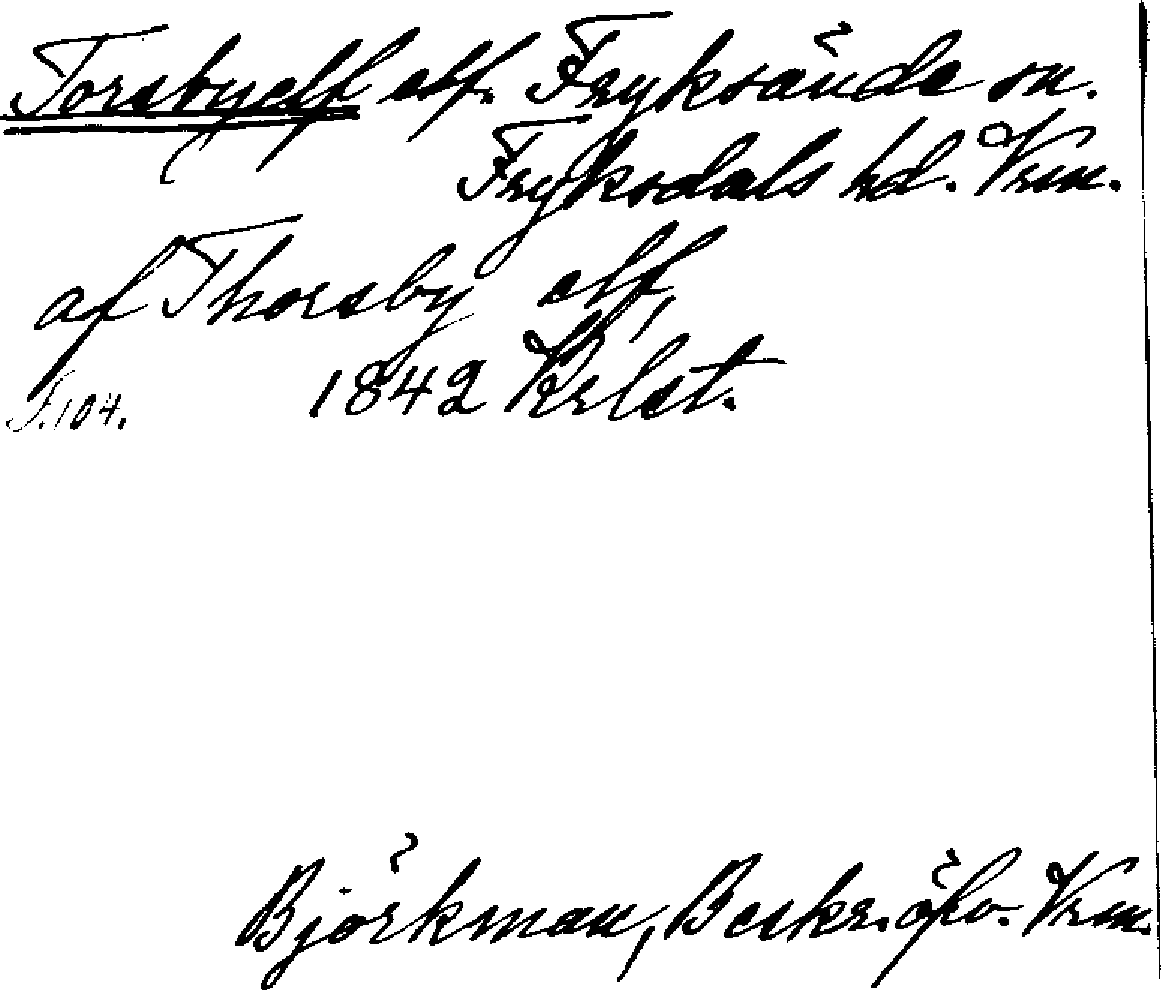 Torsbyelf elf. Fryksände sn.
Fryksdals hd. Vrm.
af Thorsby elf,
1842 Krlst.
S. 104.
Björkman, Beskr. öfv. Vrm.